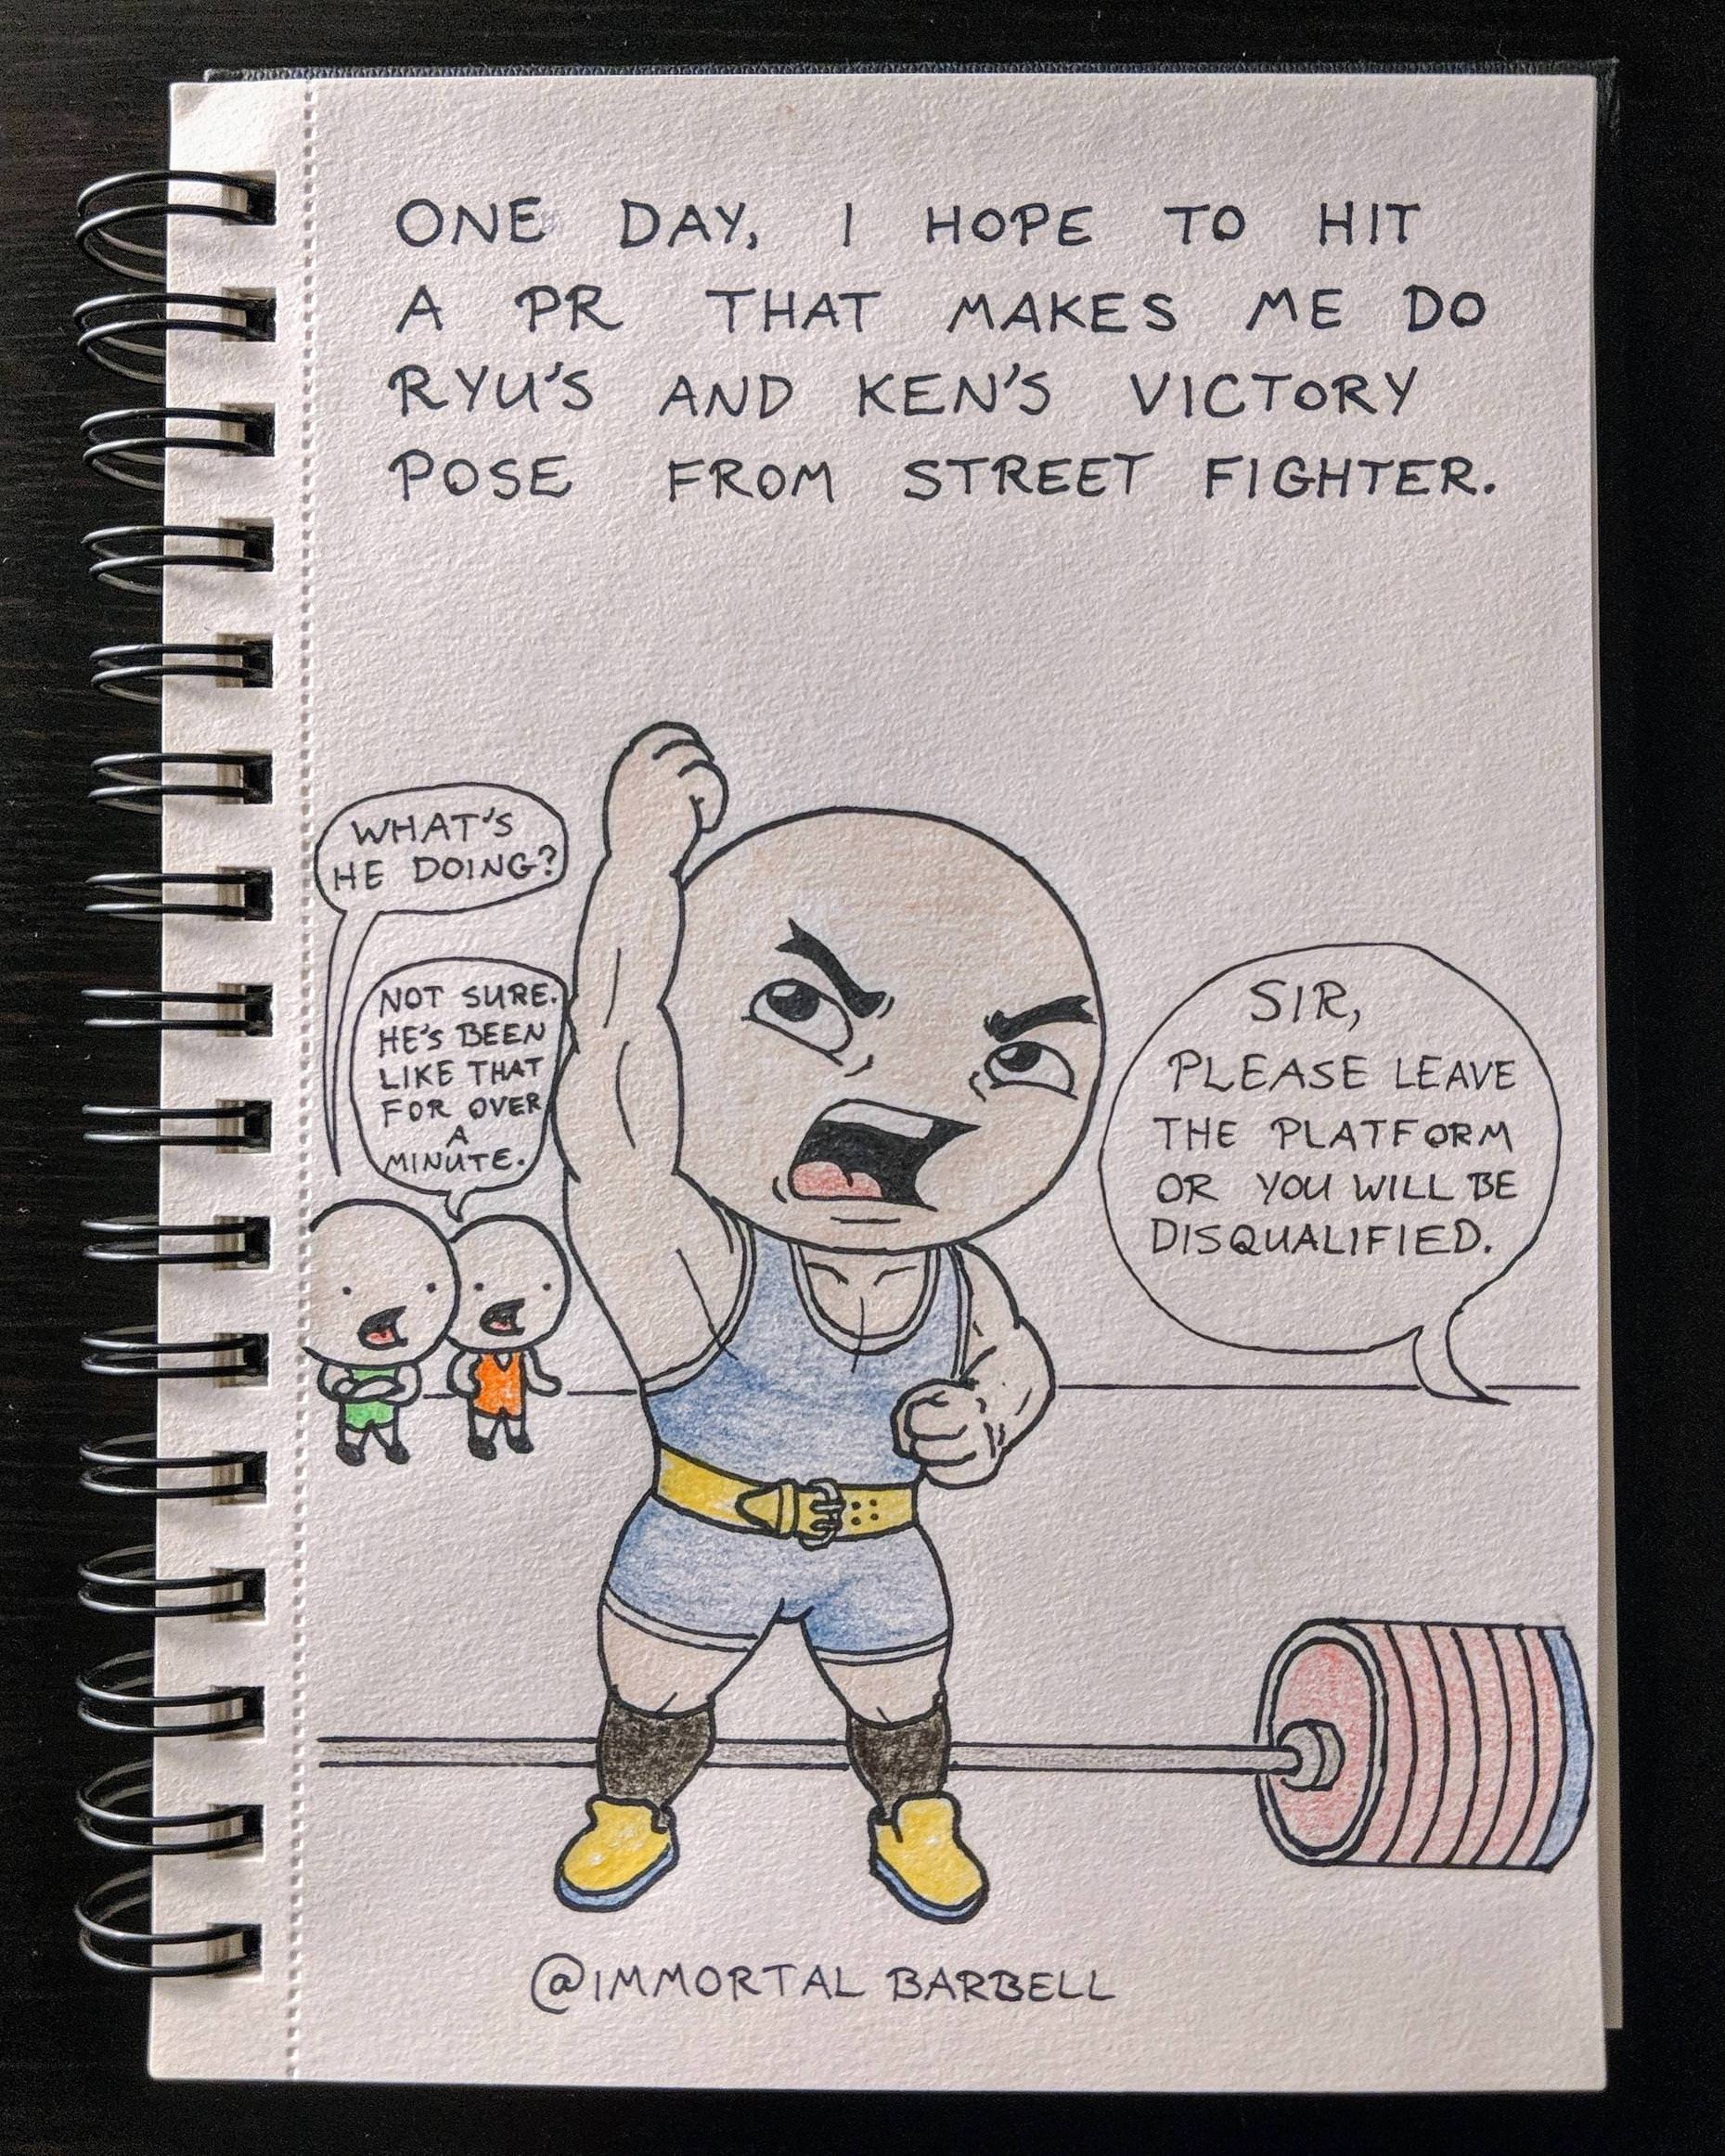 ONE DAY, I HOPE TO HIT
A PR THAT MAKES ME DO
RYU'S AND KEN'S VICTORY
POSE FROM STREET FIGHTER.
WHAT'S
HE DOING?
NOT SURE.
HE'S BEEN
LIKE THAT
FOR OVER
A
MINUTE.
SIR,
PLEASE LEAVE
THE PLATFORM
OR YOU WILL BE
DISQUALIFIED.
@IMMORTAL BARBELL